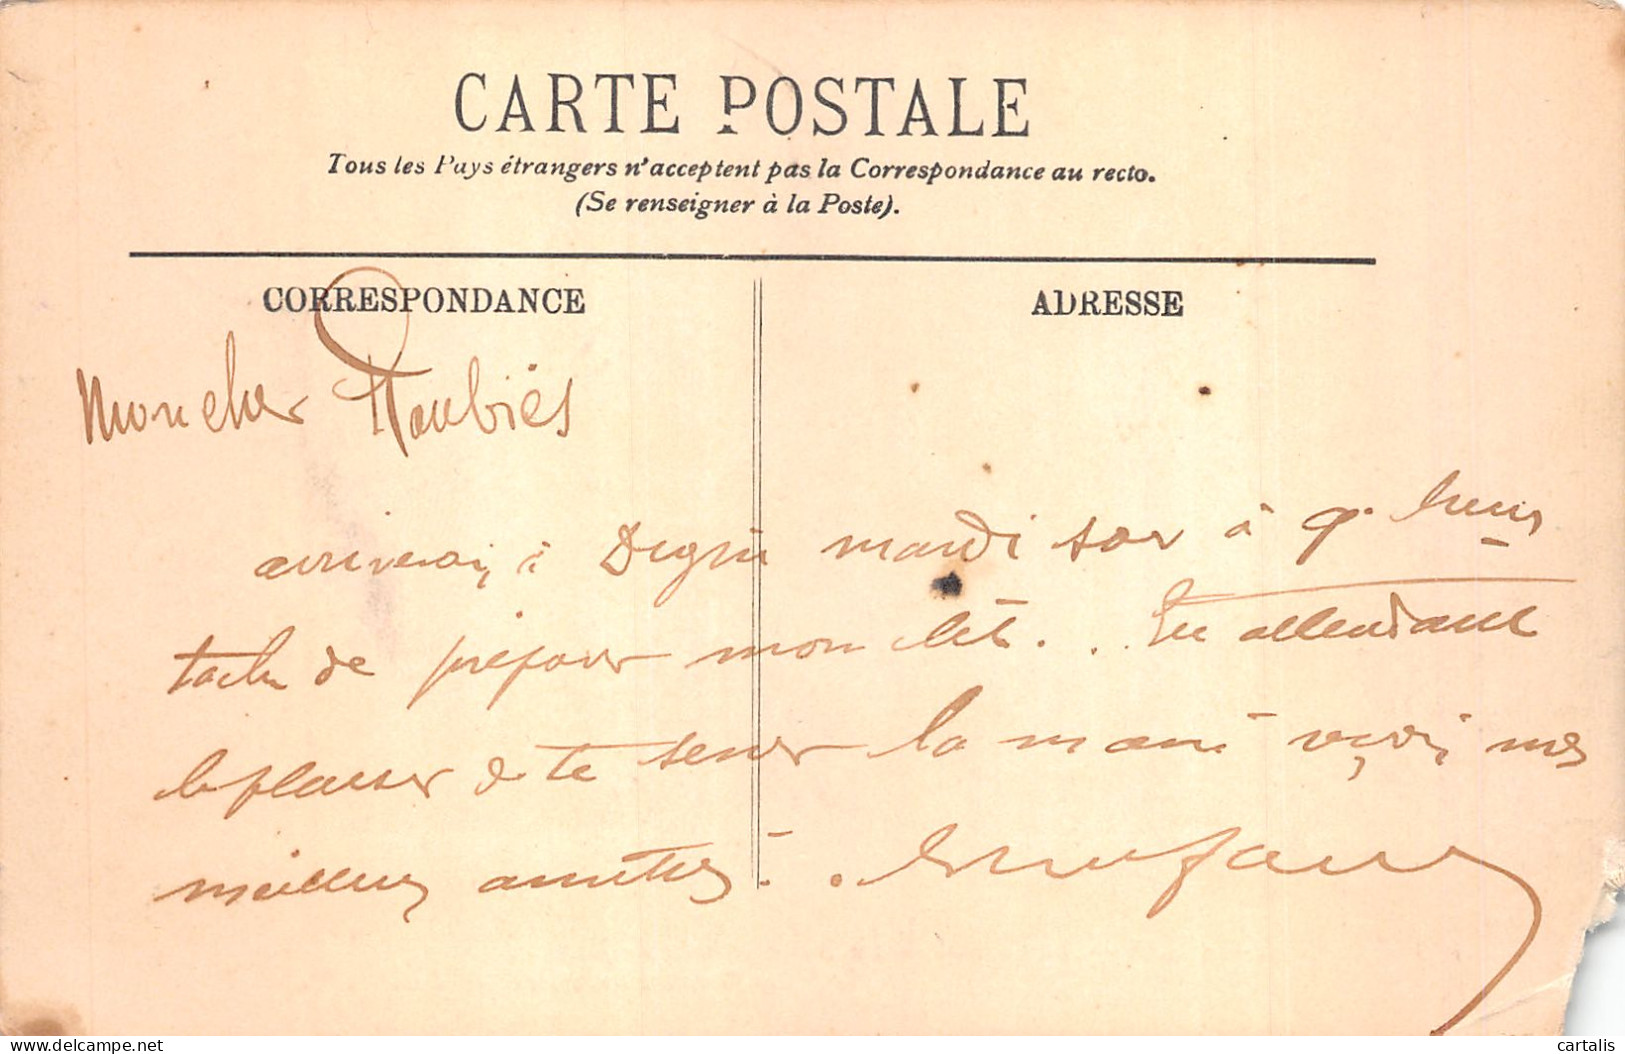 CARTE POSTALE
Tous les Pays étrangers n'acceptent pas la Correspondance au recto.
(Se renseigner à la Poste).
CORRESPONDANCE
ADRESSE
Mon cher
arriverai à mardi soir à 9 heures
tache de préparer mon lit. . En attendant
le plaisir de te serrer la main reçois mes
meilleures amitiés. .
cartalis
delcampe.net